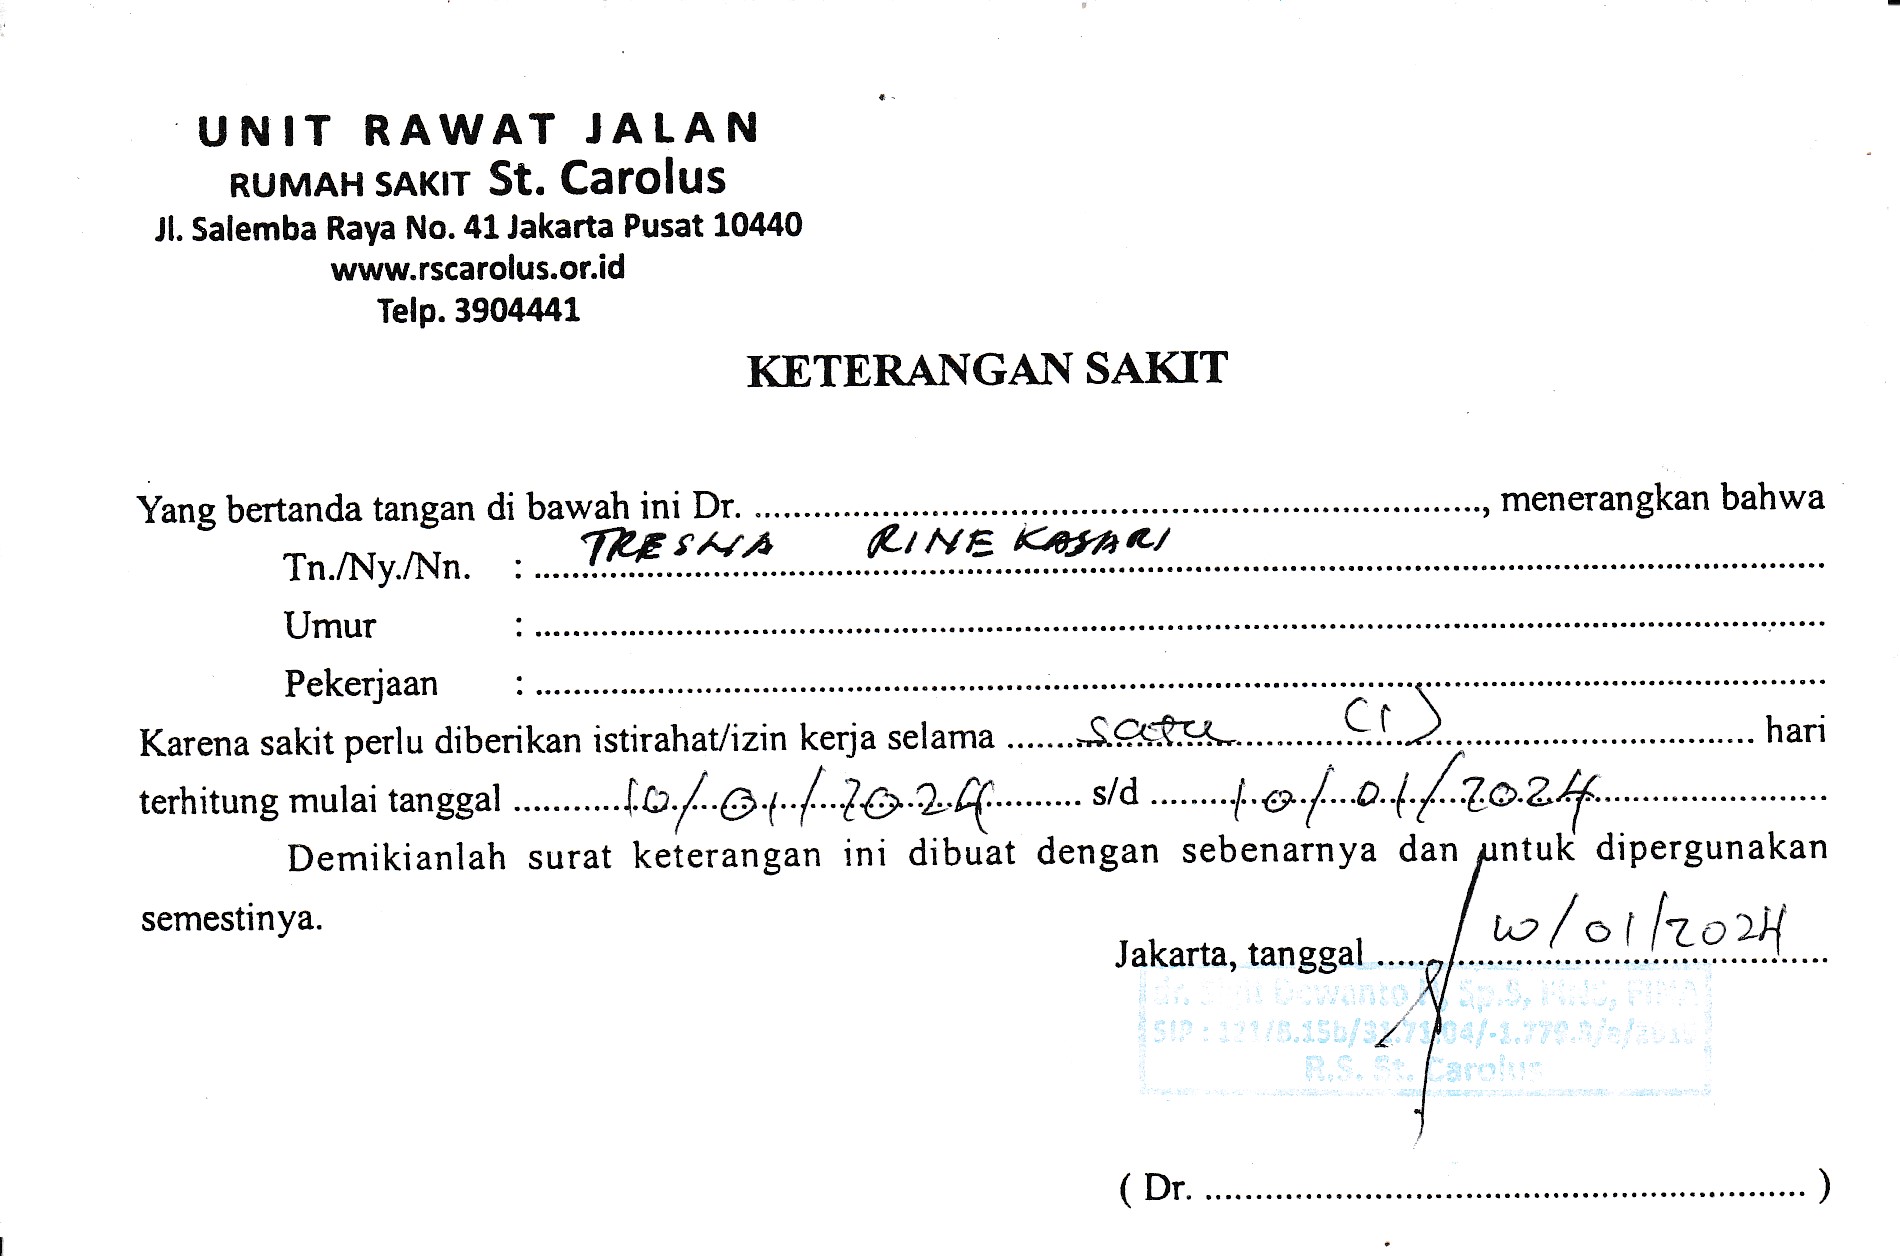 UNIT RAWAT JALAN
RUMAH SAKIT St. Carolus
Jl. Salemba Raya No. 41 Jakarta Pusat 10440
www.rscarolus.or.id
Telp. 3904441
KETERANGAN SAKIT
Yang bertanda tangan di bawah ini Dr. ........................, menerangkan bahwa
Tn./Ny./Nn. : TRESNA RINEKASARI
Umur : ........................
Pekerjaan : ........................
Karena sakit perlu diberikan istirahat/izin kerja selama satu (1) hari
terhitung mulai tanggal 10/01/2024 s/d 10/01/2024
Demikianlah surat keterangan ini dibuat dengan sebenarnya dan untuk dipergunakan
semestinya.
Jakarta, tanggal 10/01/2024
dr. Dewanto Sp.S,
SIP :
R.S. St. Carolus
( Dr. ........................ )